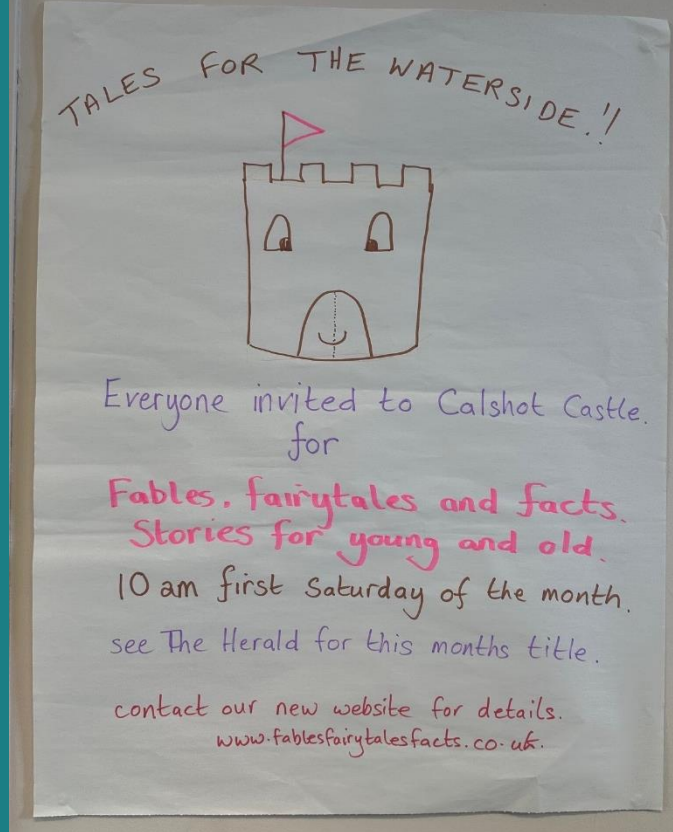 TALES FOR THE WATERSIDE.!!
Everyone invited to Calshot Castle.
for
Fables, fairytales and facts.
Stories for young and old.
10 am first Saturday of the month.
see The Herald for this months title.
contact our new website for details.
www.fablesfairytalesfacts.co.uk.